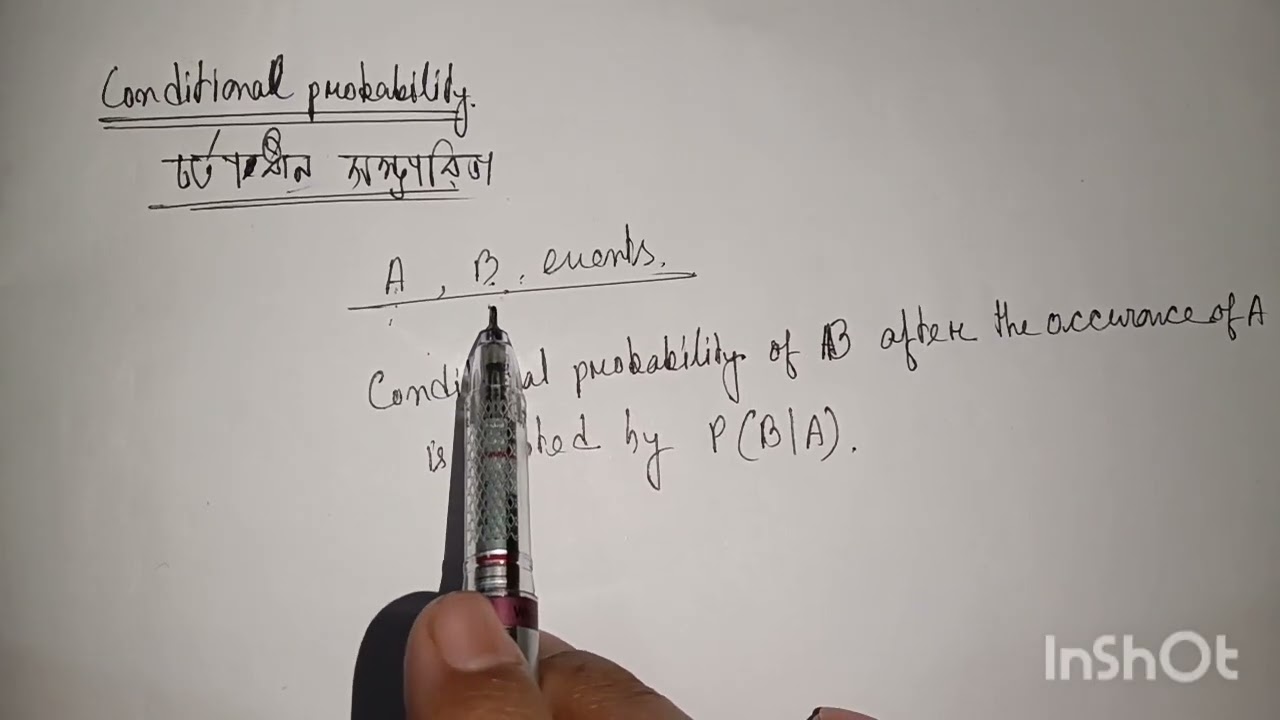 Conditional probability.
সম্ভাবিতা
A, B. events.
Conditional probability of B after the accurance of A
is by P(B|A).
InShOt